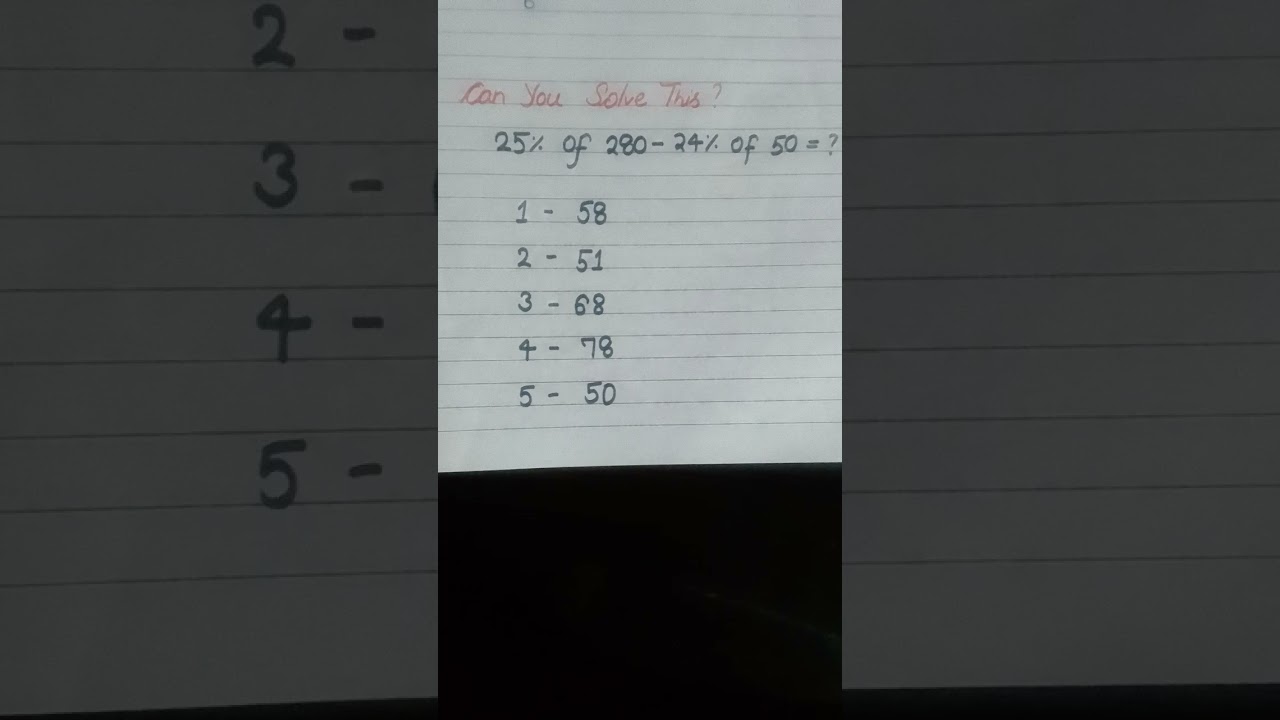 Can You Solve This?
25% of 280 - 24% of 50 = ?
1 - 58
2 - 51
3 - 68
4 - 78
5 - 50
2 -
3 -
4 -
5 -